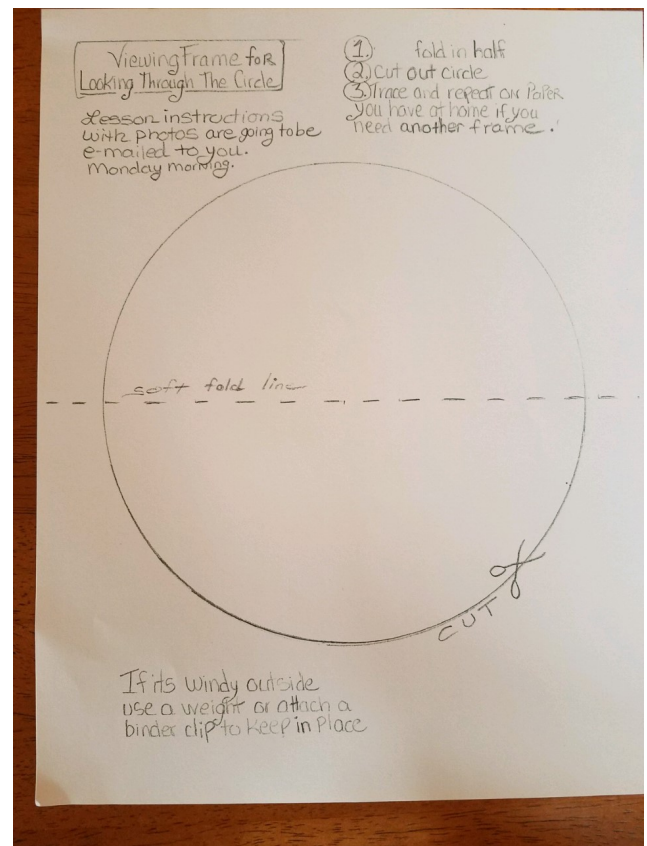 Viewing Frame for
Looking Through The Circle
Lesson instructions
with photos are going to be
e-mailed to you.
Monday morning.
1. fold in half
2. Cut out circle
3. Trace and repeat on Paper
you have at home if you
need another frame.
soft fold line
CUT
If its windy outside
use a weight or attach a
binder clip to keep in place